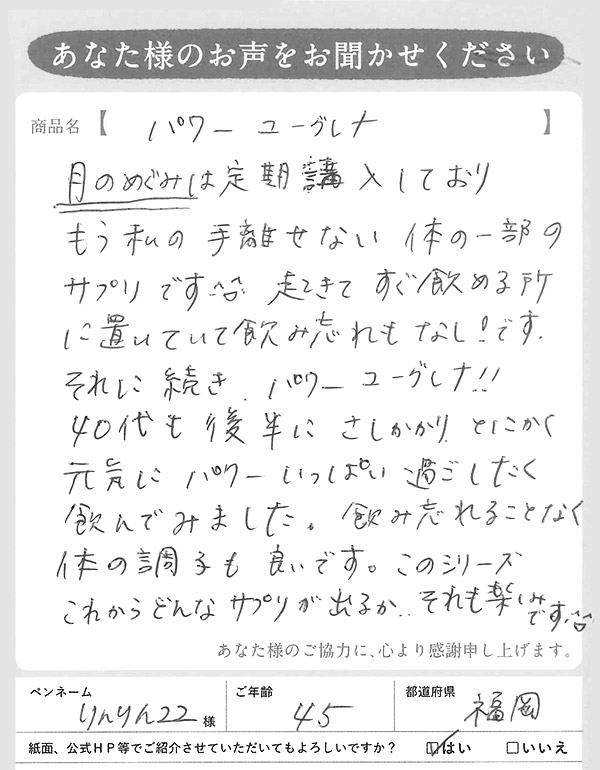 あなた様のお声をお聞かせください
商品名【 パワーユーグレナ 】
月のめぐみは定期購入しており
もう私の手離せない体の一部の
サプリです^^ 起きてすぐ飲める所
に置いていて飲み忘れもなし!です.
それに続き、パワーユーグレナ!!
40代も後半にさしかかり、とにかく
元気にパワーいっぱい過ごしたく
飲んでみました。飲み忘れることなく
体の調子も良いです。このシリーズ
これからどんなサプリが出るか..それも楽しみ
です^^
あなた様のご協力に、心より感謝申し上げます。
ペンネーム りんりん22様 ご年齢 45 都道府県 福岡
紙面、公式HP等でご紹介させていただいてもよろしいですか? ☑はい □いいえ